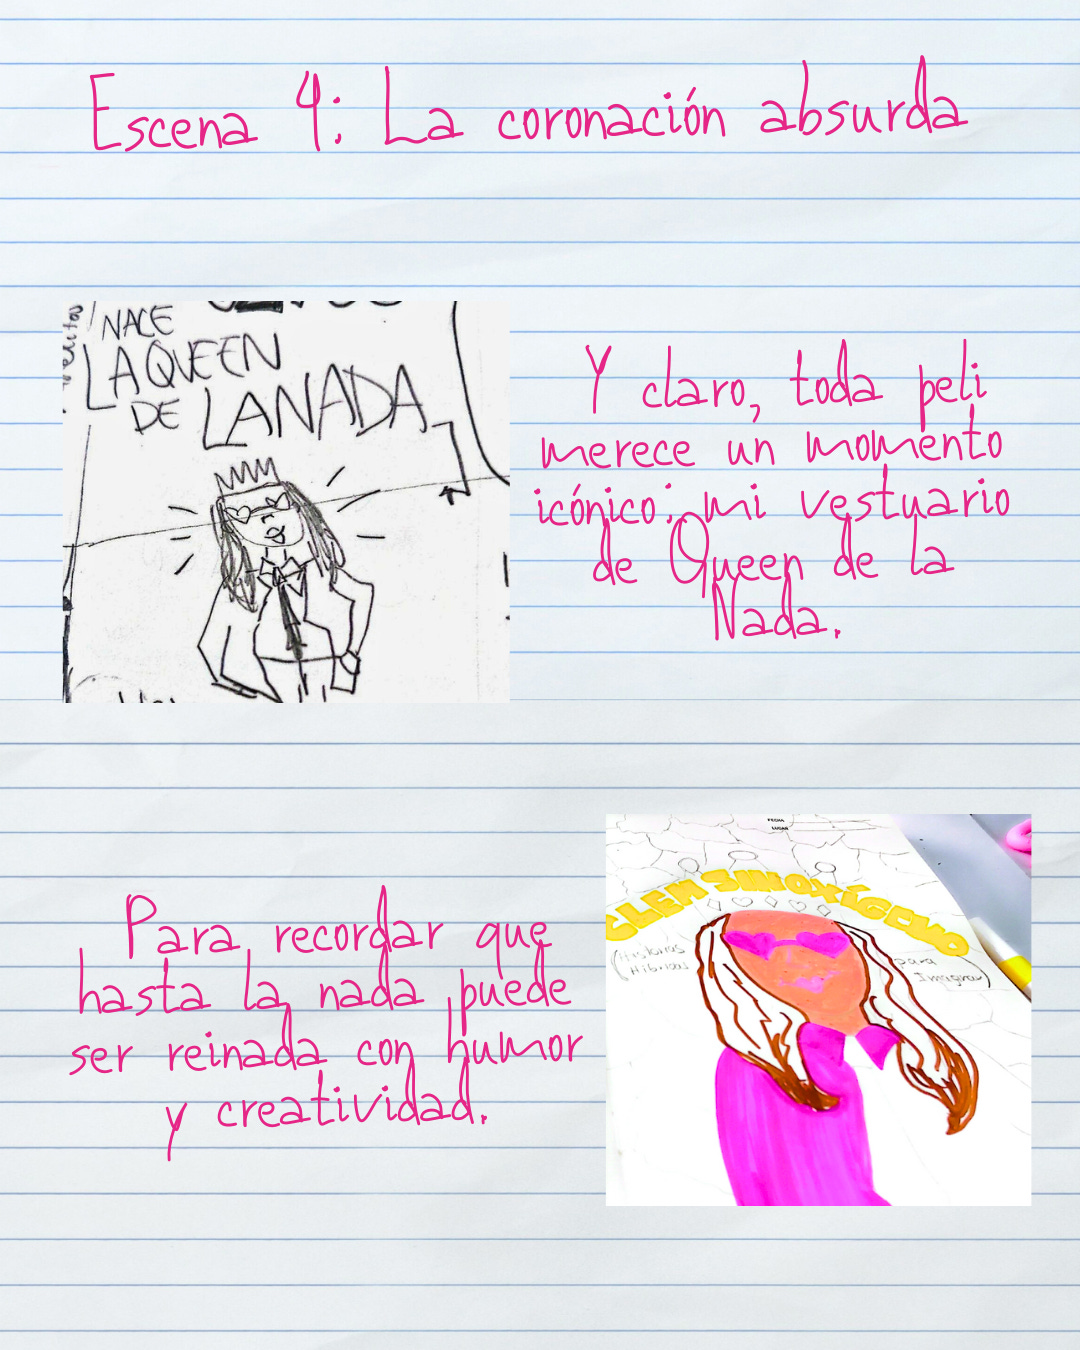 Escena 4: La coronación absurda
NACE
LA QUEEN
DE LA NADA
Y claro, toda peli
merece un momento
icónico: mi vestuario
de Queen de la
Nada.
FECHA
LUGAR
CLEM SIN OXÍGENO
(Historias
Híbridas
para
Imaginar)
Para recordar que
hasta la nada puede
ser reinada con humor
y creatividad.